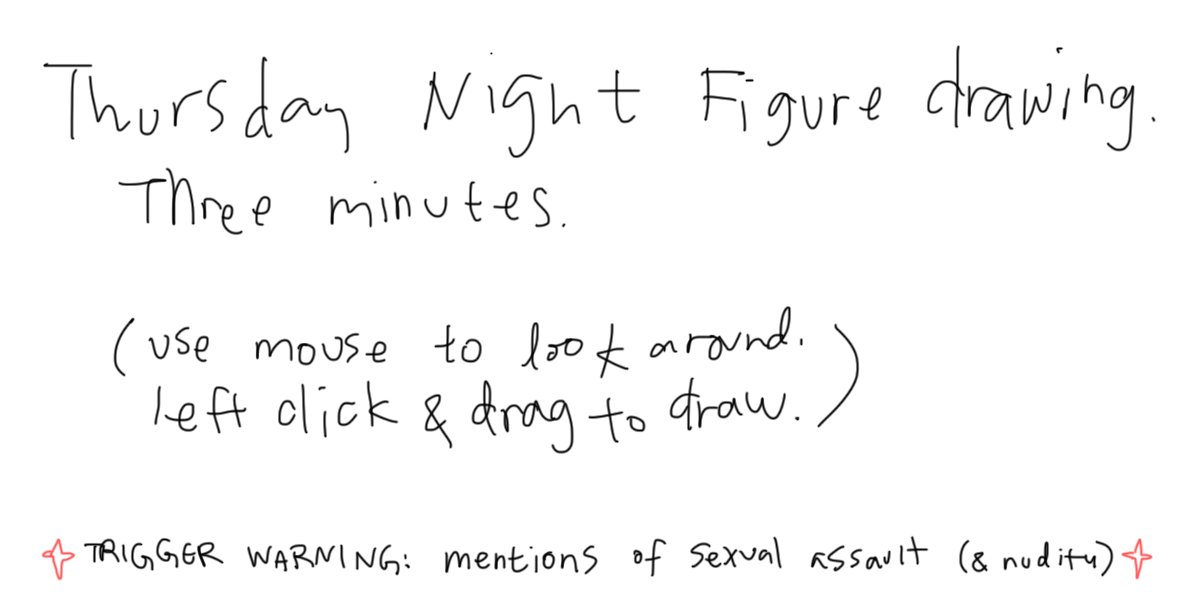 Thursday Night Figure drawing.
Three minutes.
(use mouse to look around.
left click & drag to draw.)
TRIGGER WARNING: mentions of sexual assault (& nudity)